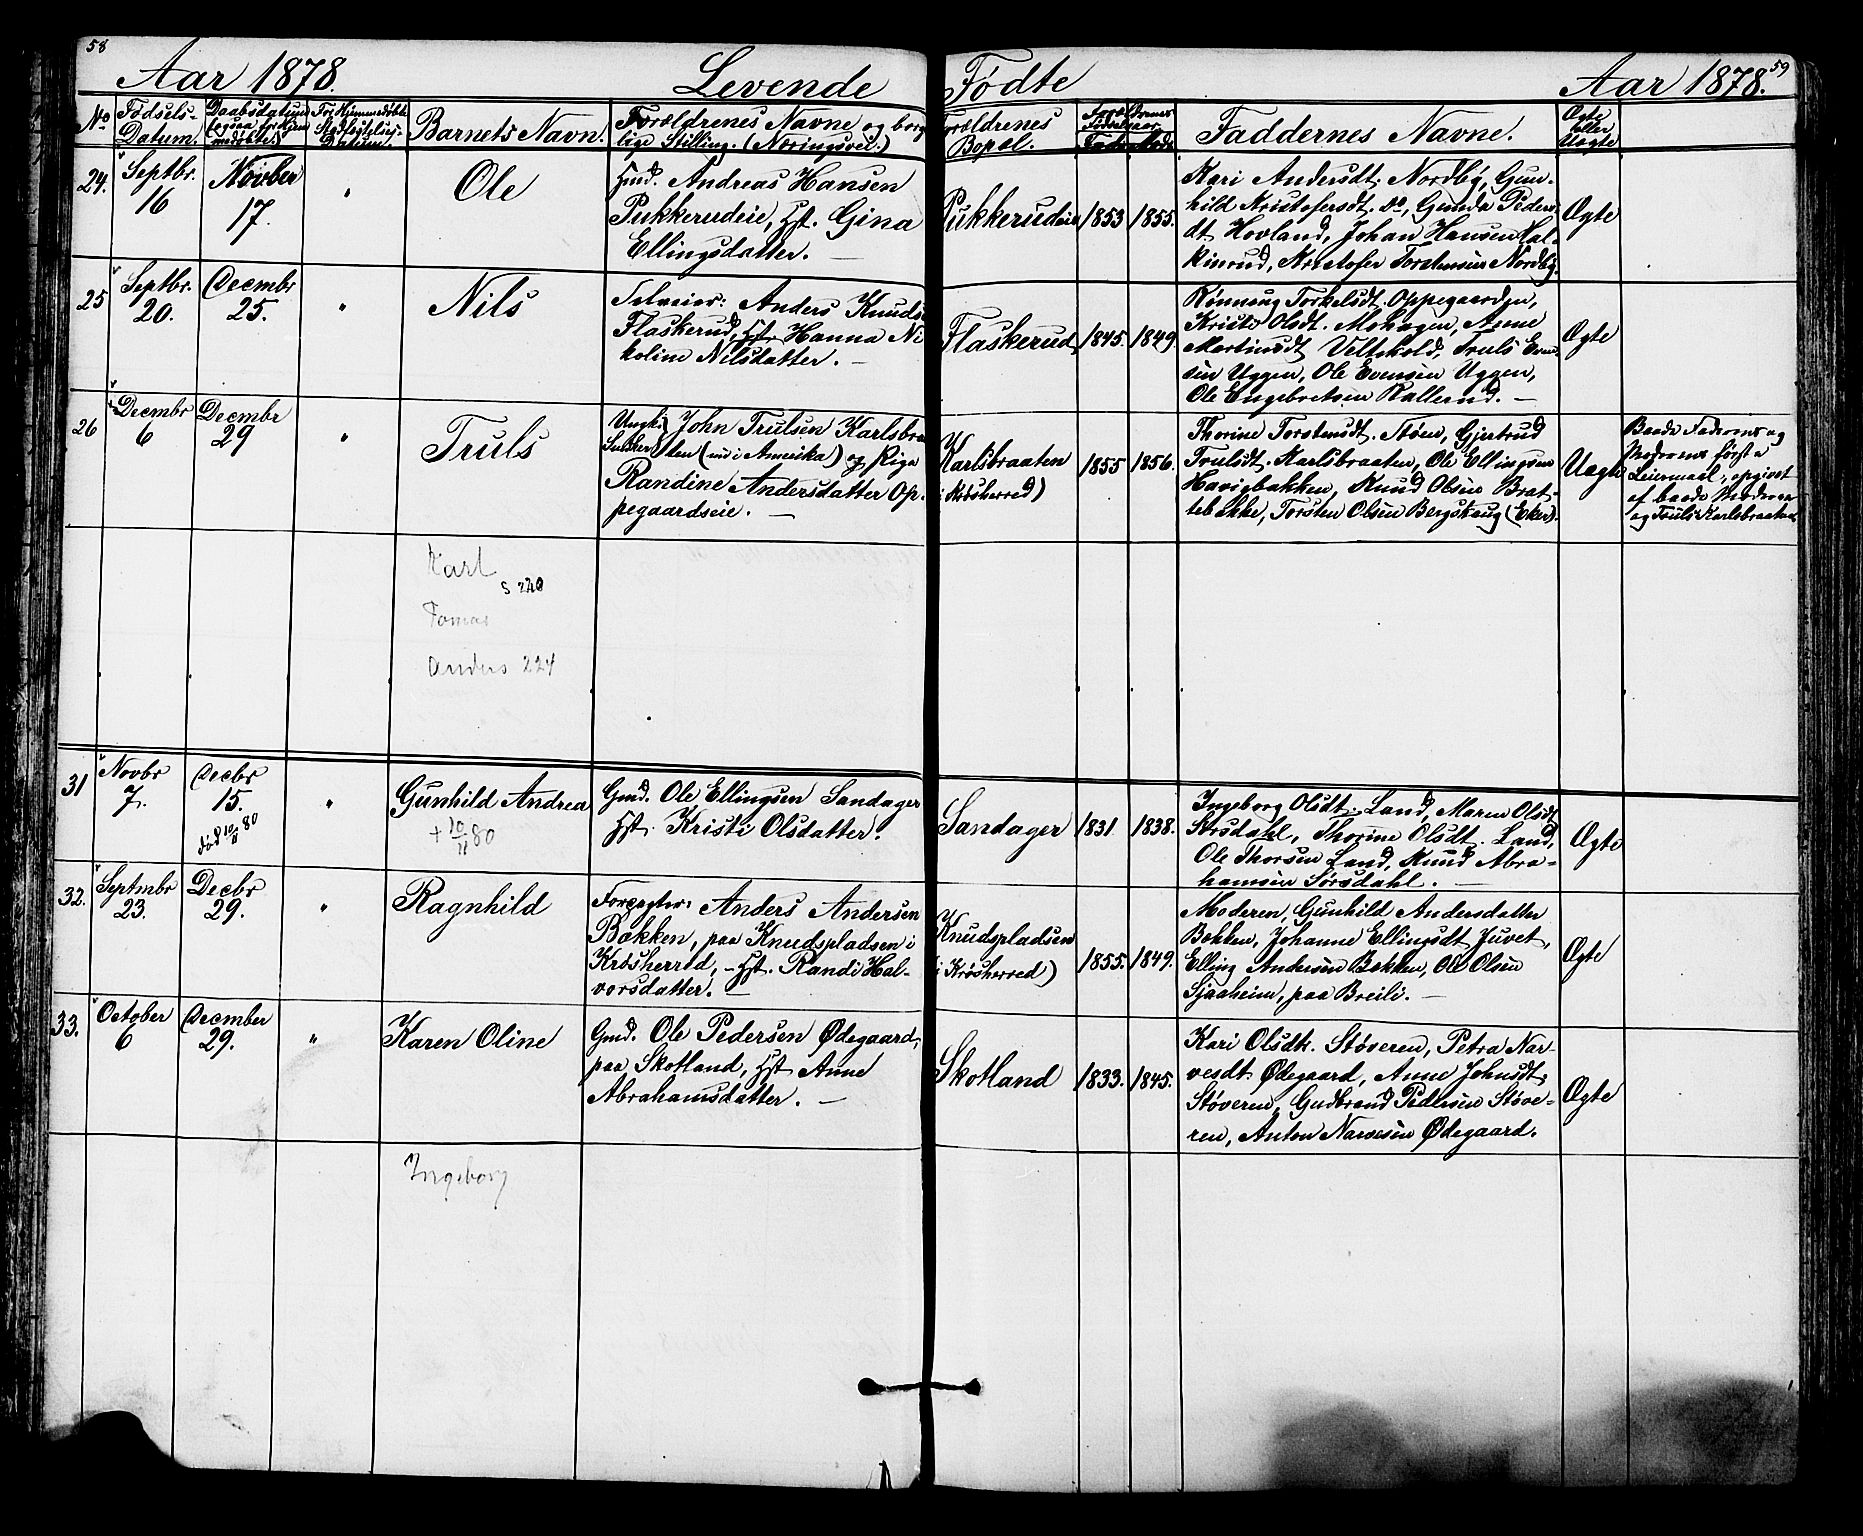 58
Aar 1878.
Levende
Fødte
Aar 1878.
59
No
Fødsels-
Datum.
Daabsdatum
Barnets Navn.
Forældrenes Navne og borg
lige Stilling. (Næringsvei.)
Forældrenes
Bopæl.
Faddernes Navne.
Ægte
eller
Uægte
24.
Septbr.
16
Novber
17.
"
Ole
Gmd. Andreas Hansen
Pukkerudeie, Hst. Gina
Ellingsdatter. —
Pukkerudeie
1853
1855.
Kari Andersdt. Nordby, Gun-
hild Kristofersdt. do, Gunda Peders
dt Hovland, Johan Hansen Kal-
kinrud, Kristofer Torstensen Nordby.
Ægte
25
Septbr.
20.
Decembr
25.
"
Nils
Selveier: Anders Knuds.
Flaskerud, Hst. Hanna Ni
koline Nilsdatter. —
Flaskerud
1845.
1849.
Rønnaug Torkelsdt. Oppegaarden,
Kristi Olsdt. Mohagen, Anne
Martinsdt Veltekold, Truls Even-
sen Uggen, Ole Evensen Uggen,
Ole Engebretsen Kallerud. —
Ægte
26
Decembr
6
Decembr
29
"
Truls
Ungk. John Trulsen Karlsbra
ten (nu i Amerika) og Pige
Randine Andersdatter Op-
pegaardseie. —
Karlsbraaten
(i Krøsherred)
1855
1856.
Thorine Torstensdt. Støen, Gjertrud
Trulsdt. Karlsbraaten, Ole Ellingsen
Havigbakken, Knud Olsen Brat-
tebakke, Torsten Olsen Bergskaug (Eker).
Uægte
Baade Faderens og
Moderens første
Leiermaal, opgivet
af baade Moderen
og Truls Karlsbraaten
Karl
S 220
Tomas
Anders 224
31
Novbr
7.
Decbr
15.
død 10/11 80
"
Gunhild Andrea
+ 10/11 80
Gmd. Ole Ellingsen Sandager
Hst. Kristi Olsdatter.
Sandager
1831
1838.
Ingeborg Olsdt. Land, Maren Olsdt
Sørsdahl, Thorine Olsdt. Land,
Ole Thorsen Land, Knud Abra-
hamsen Sørsdahl. —
Ægte
32.
Septmbr
23.
Decbr
29.
"
Ragnhild
Forpagter: Anders Andersen
Bækken, paa Knudspladsen i
Krøsherred, - Hst. Randi Hal-
vorsdatter. —
Knudspladsen
(i Krøsherred)
1855.
1849.
Moderen, Gunhild Andersdatter
Bækken, Johanne Ellingsdt Juvet,
Elling Andersen Bækken, Ole Olsen
Sjaaheim, paa Breili. —
Ægte
33.
October
6
December
29.
"
Karen Oline
Gmd. Ole Pedersen Ødegaard,
paa Skotland, Hst Anne
Abrahamsdatter. —
Skotland
1833.
1845.
Kari Olsdtr. Støveren, Petra Nar-
vesdt. Ødegaard, Anne Johnsdt,
Støveren, Gudbrand Pedersen Støve-
ren, Anton Narvesen Ødegaard.
Ægte
Ingeborg